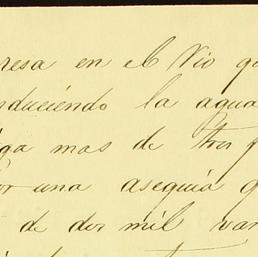 resa en el rio qu
nduciendo la agua
ga mas de tres
or una asequia q
de dos mil var